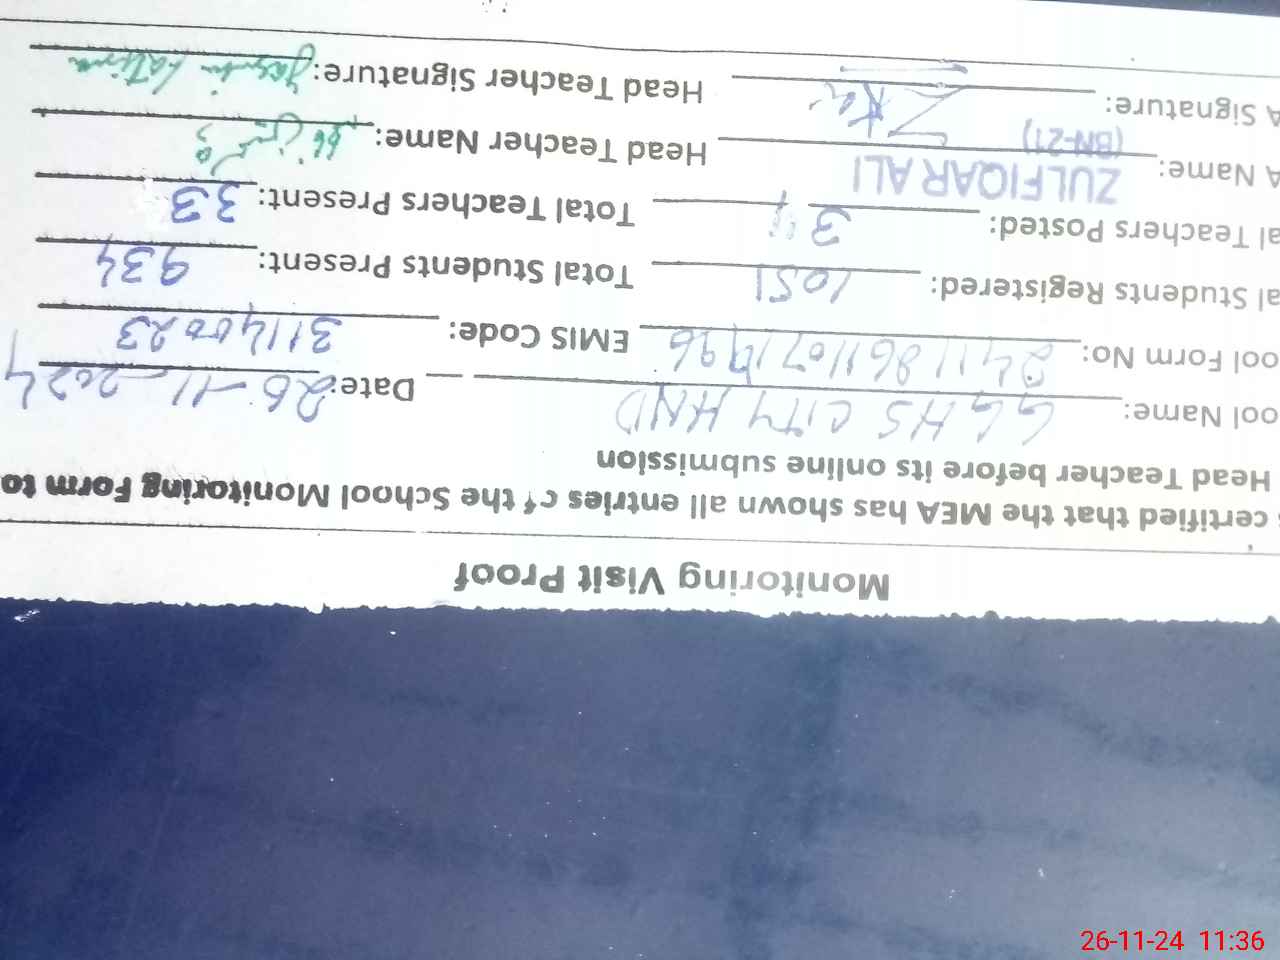 Monitoring Visit Proof
certified that the MEA has shown all entries of the School Monitoring Form to
Head Teacher before its online submission
ool Name: GGHS CITY HND Date: 26-11-2024
ool Form No: EMIS Code: 31140023
al Students Registered: 1051 Total Students Present: 934
al Teachers Posted: 34 Total Teachers Present: 33
A Name: ZULFIQAR ALI (BN-21) Head Teacher Name:
A Signature: Head Teacher Signature:
26-11-24 11:36